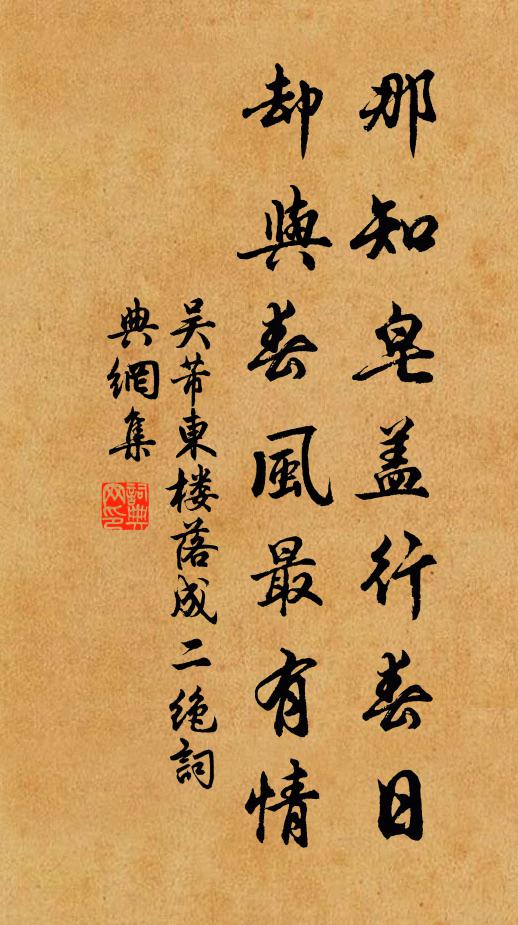 那知皂盖行春日
却與春風最有情
吴芾東楼落成二绝詞
典網集
詞典
网印